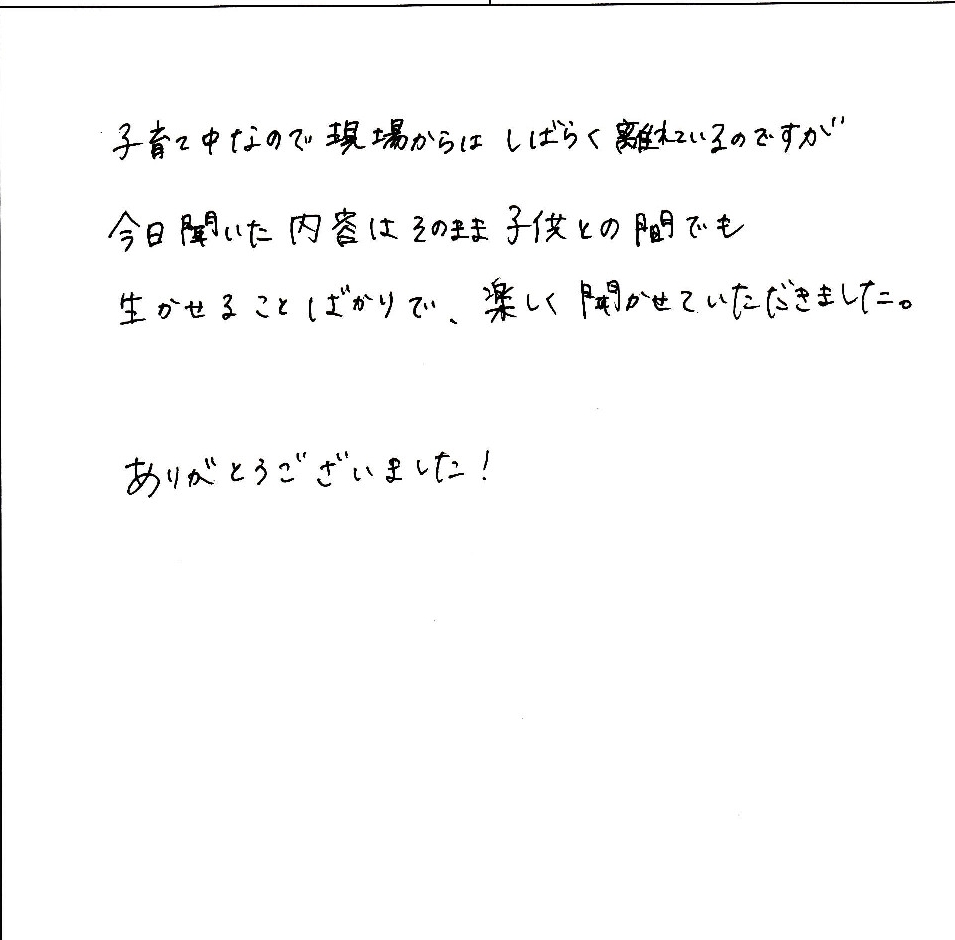 子育て中なので現場からはしばらく離れているのですが
今日聞いた内容はそのまま子供との間でも
生かせることばかりで、楽しく聞かせていただきました。
ありがとうございました！